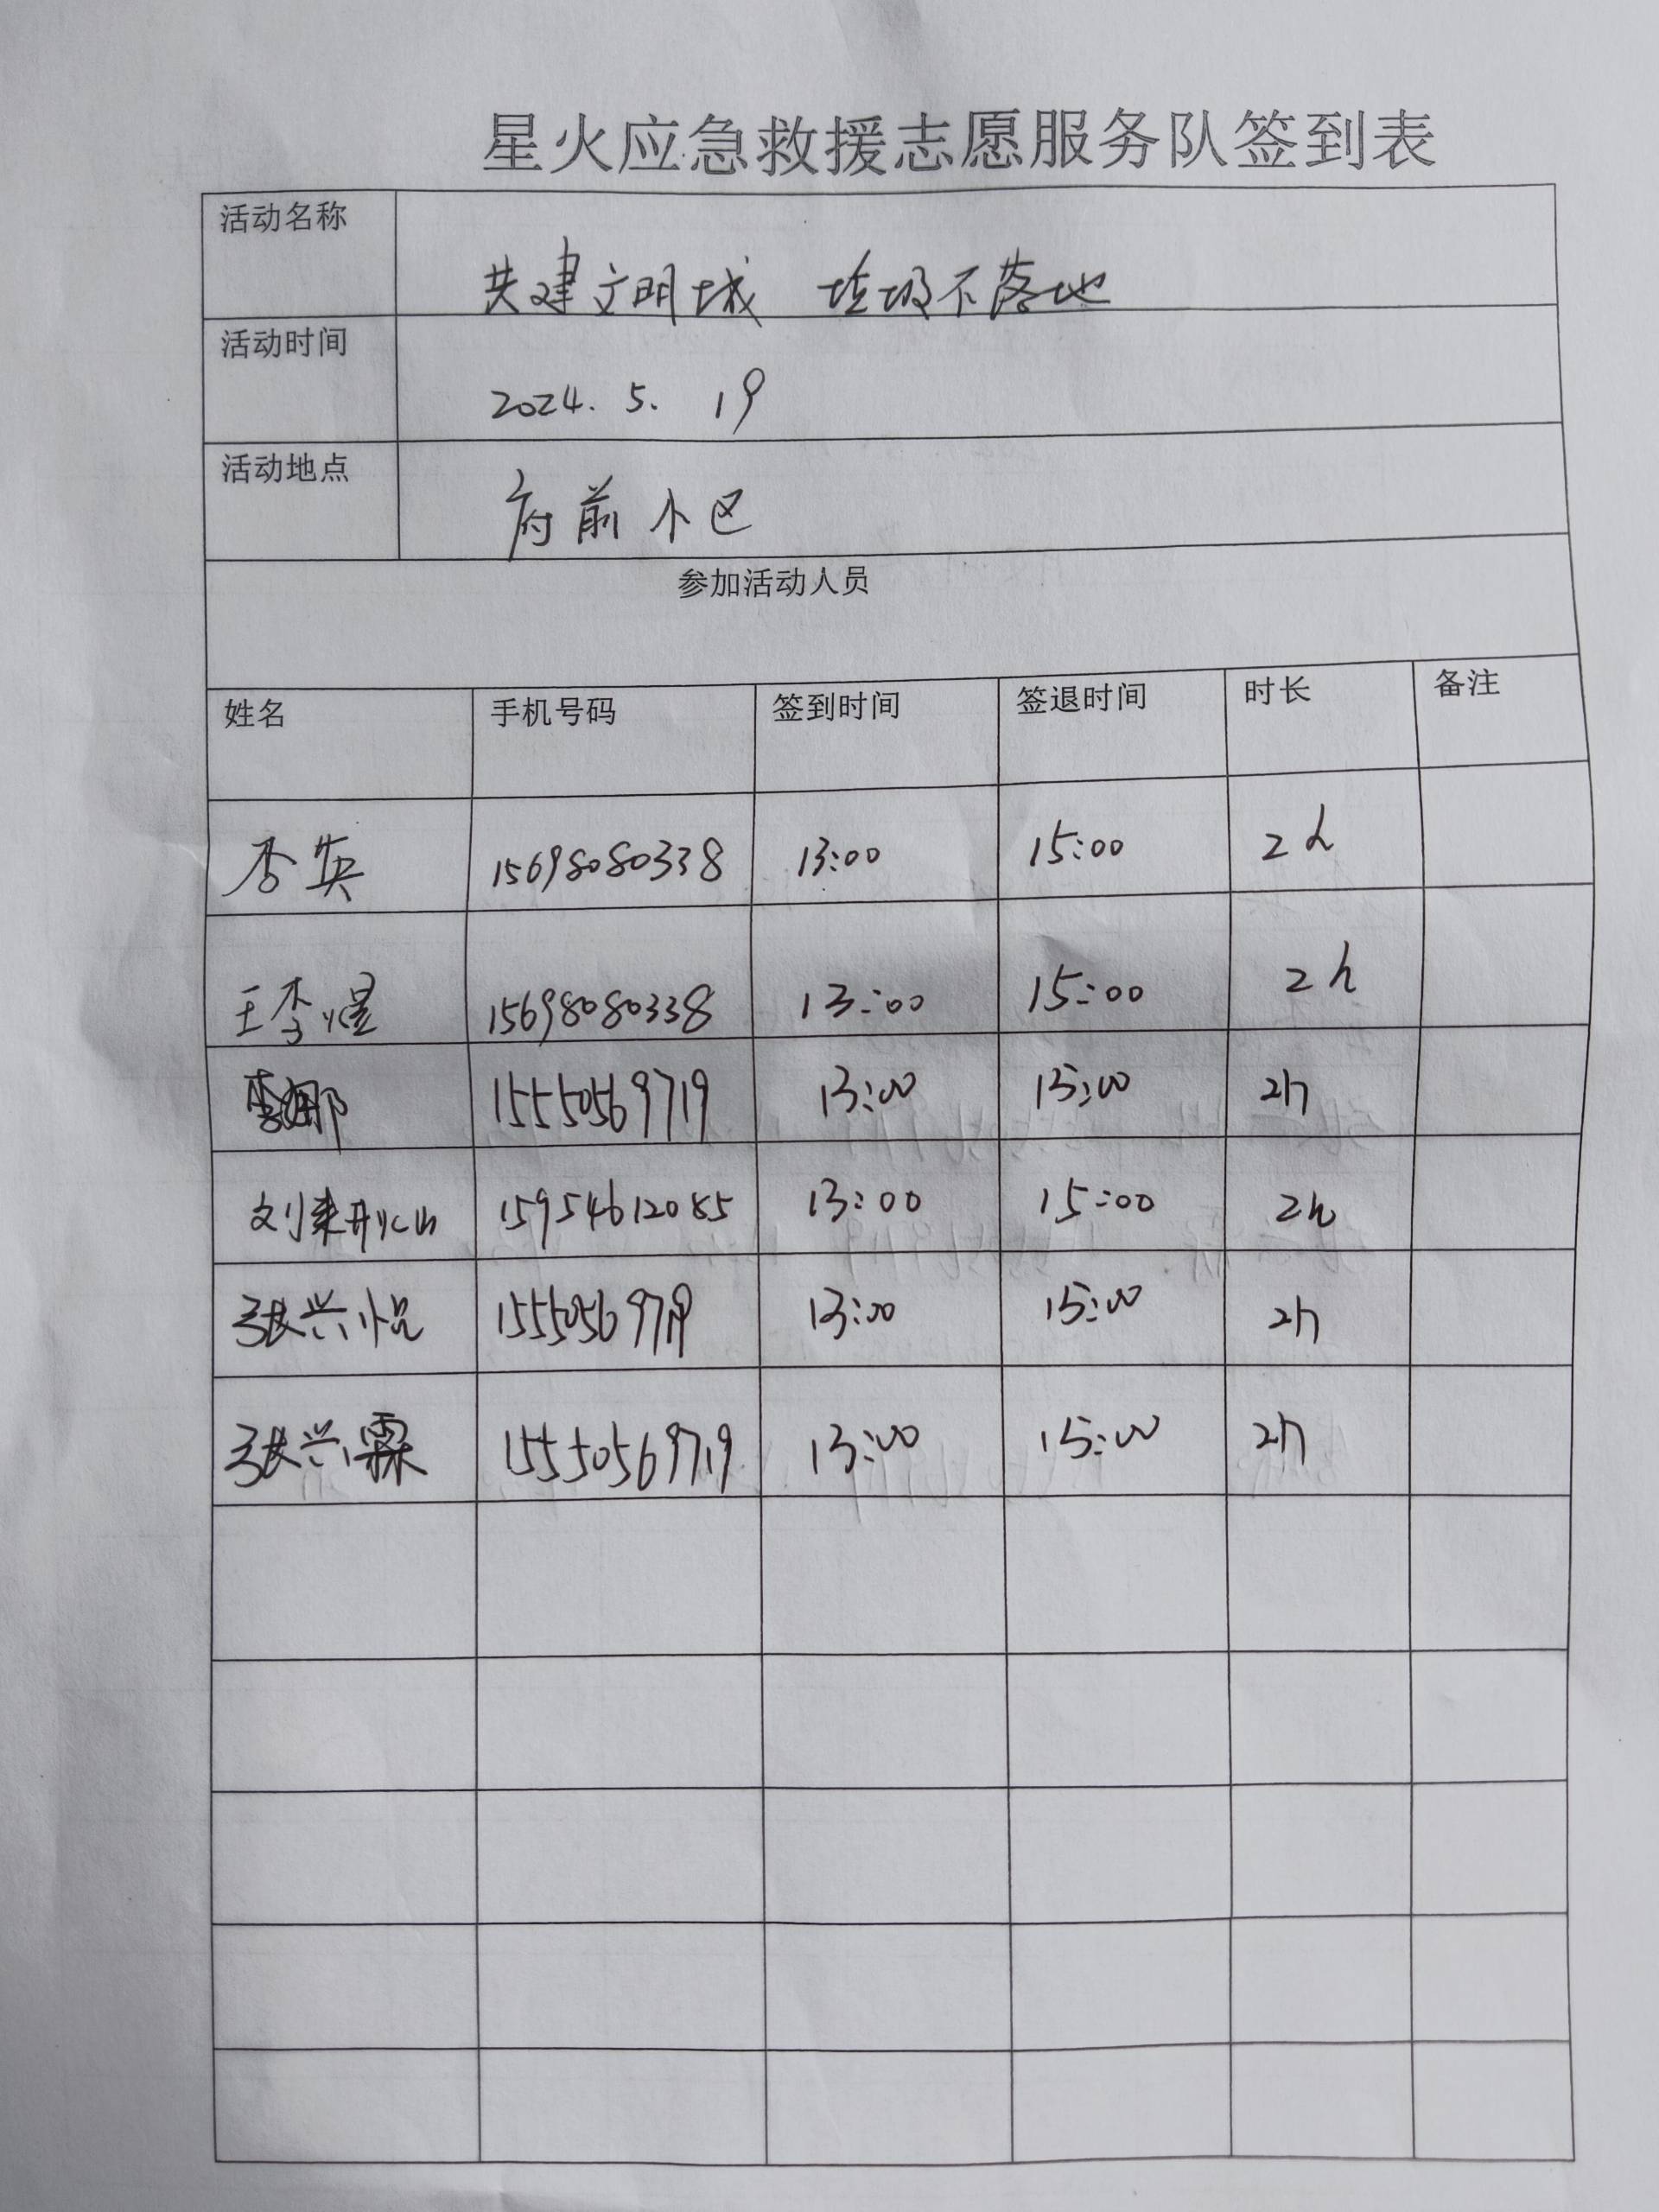 星火应急救援志愿服务队签到表
活动名称 共建文明城 垃圾不落地
活动时间 2024. 5. 19
活动地点 府前小区
参加活动人员
姓名 手机号码 签到时间 签退时间 时长 备注
李英 15698080338 13:00 15:00 2h
王李煜 15698080338 13:00 15:00 2h
李娜 15550569719 13:00 15:00 2h
15954612085 13:00 15:00 2h
张兴悦 15550569719 13:00 15:00 2h
张兴霖 15550569719 13:00 15:00 2h